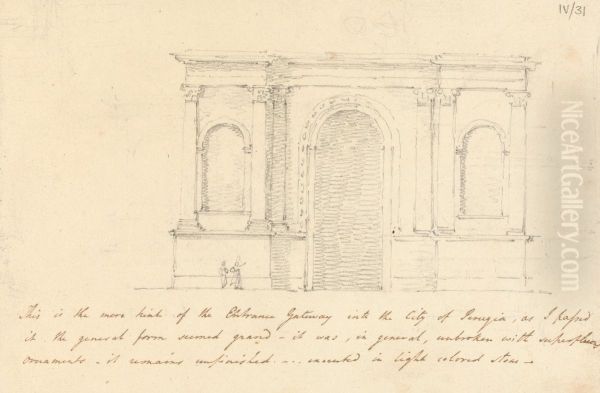 IV/31
This is the mere hint of the Entrance Gateway into the City of Perugia, as I passed
it. the general form seemed grand - it was, in general, unbroken with superfluous
ornaments - it remains unfinished. -.. executed in light colored stone -
NiceArtGallery.com